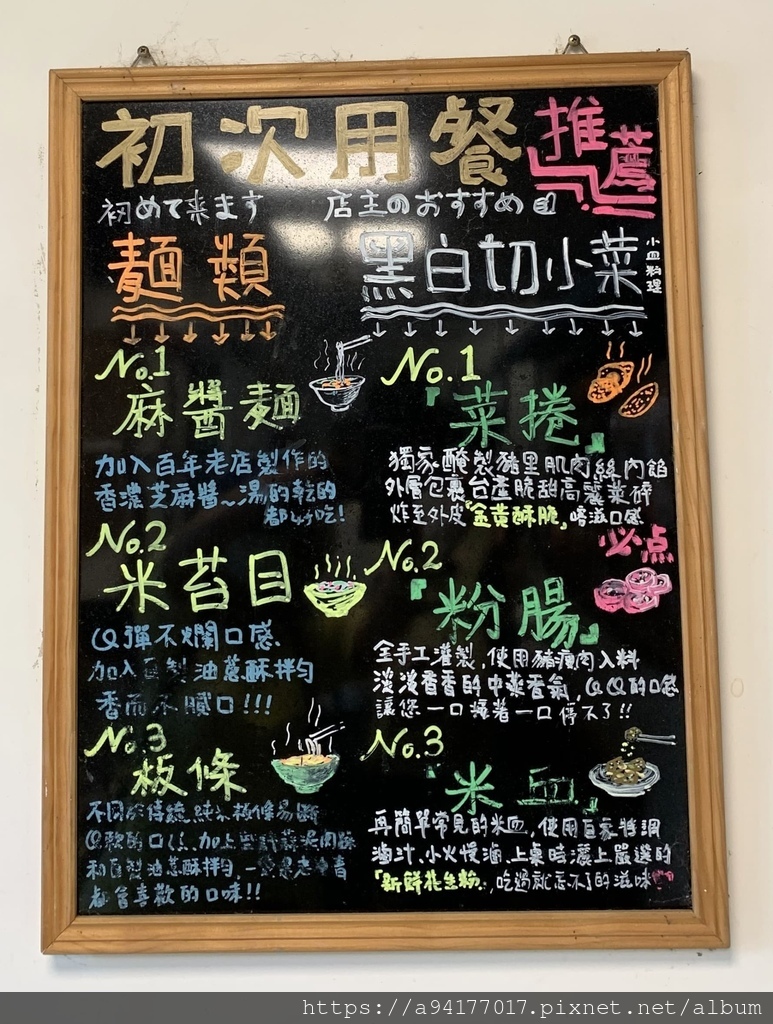 初次用餐 推薦
初めて来ます 店主のおすすめ
麵類
No.1
麻醬麵
加入百年老店製作的
香濃芝麻醬~湯的乾的
都好吃!
No.2
米苔目
QQ彈不爛口感
加入自製油蔥酥拌勻
香而不膩口!!!
No.3
板條
不同於傳統純米板條易斷
QQ軟的口
和自製油蔥酥拌勻,
都會喜歡的口味!!
黑白切小菜
小皿料理
No.1
『菜捲』
獨家醃製豬里肌肉絲內餡
外層包裹台產脆甜高麗菜碎
炸至外皮『金黃酥脆』嚐滋口感
No.2
必点
『粉腸』
全手工灌製,使用豬瘦肉入料
淡淡香香的中藥香氣,QQ的口感
讓您一口接著一口停不了!!
No.3
『米血』
再簡單常見的米血,使用自家醬調
滷汁、小火慢滷、上桌時灑上嚴選的
『新鮮花生粉』,吃過就忘不了的滋味
https://a94177017.pixnet.net/album